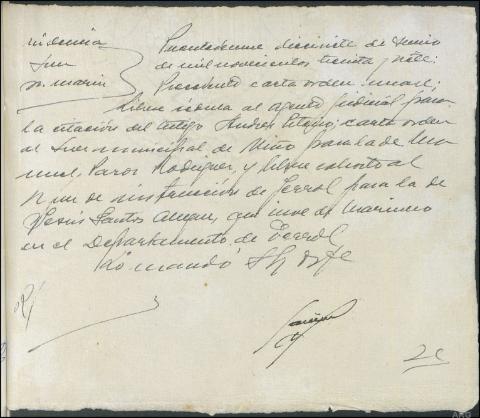 Providencia
Juez
Sr. Marín
Puentedeume diecisiete de Junio
de mil novecientos treinta y siete;
Precedente carta orden únase;
líbrese cédula al agente judicial para
la citación del testigo Andrés; carta orden
al Juez municipal de Miño para la de Ma-
nuel Pazos Rodríguez, y líbrese exhorto al
de instrucción de Ferrol para la de
Jesús Santos, que sirve de Marinero
en el Departamento de Ferrol
Lo mandó S Sª doy fe